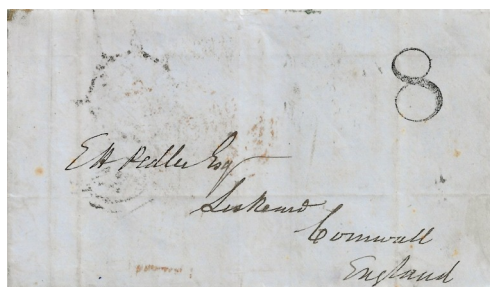 8
E H Pedler Esq
Liskeard
Cornwall
England